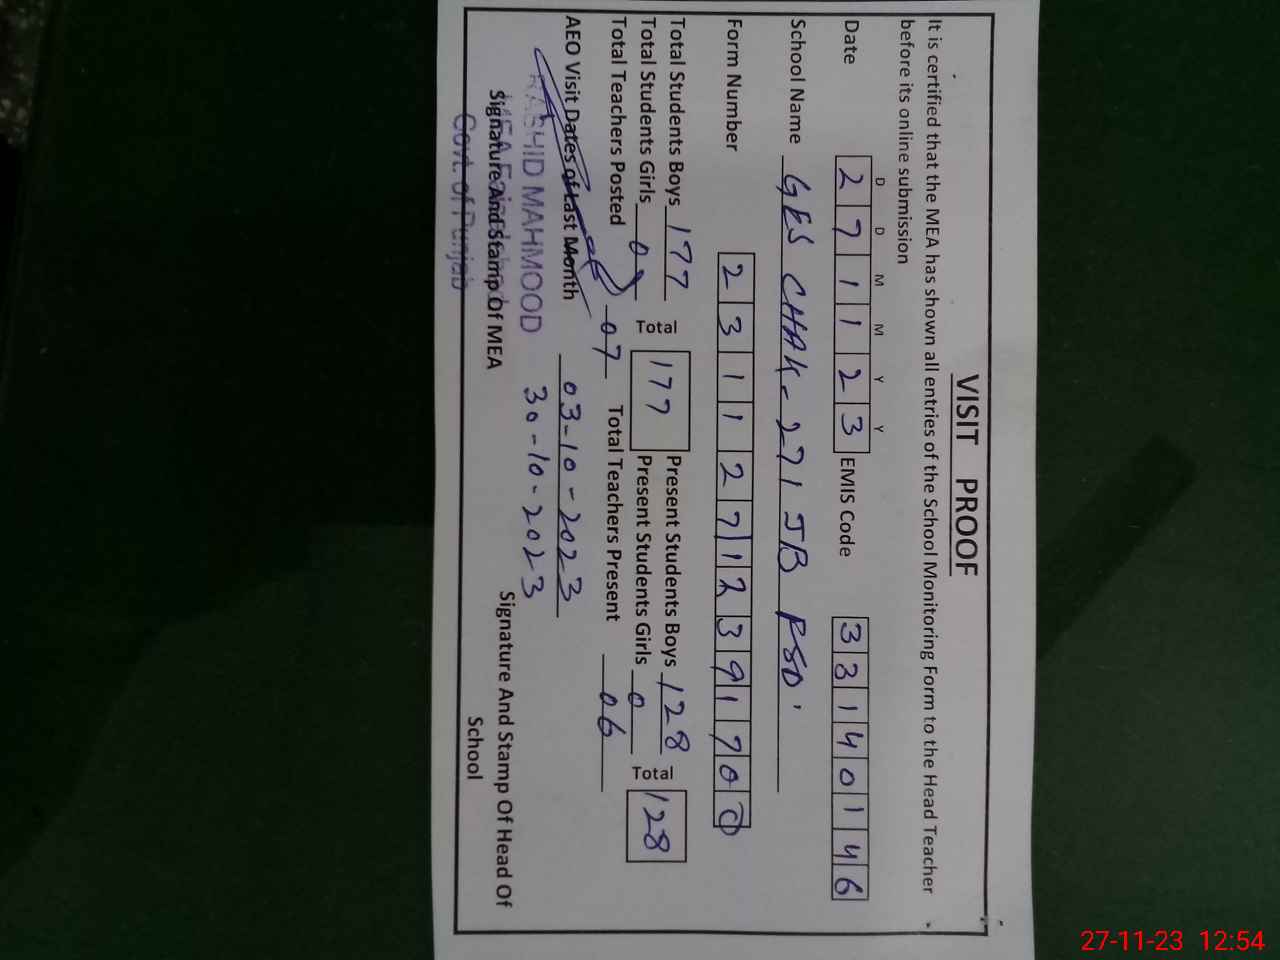 VISIT PROOF
It is certified that the MEA has shown all entries of the School Monitoring Form to the Head Teacher
before its online submission
D D M M Y Y
Date 2 7 1 1 2 3 EMIS Code 3 3 1 4 0 1 4 6
School Name GES CHAK-271 JB FSD.
Form Number 2 3 1 1 2 7 1 2 3 9 1 7 0 0
Total Students Boys 177 Total 177 Present Students Boys 128 Total 128
Total Students Girls 0 Present Students Girls 0
Total Teachers Posted 07 Total Teachers Present 06
AEO Visit Dates of Last Month 03-10-2023
30-10-2023
RASHID MAHMOOD
MEA
Signature And Stamp Of MEA
Govt. of Punjab
Signature And Stamp Of Head Of
School
27-11-23 12:54